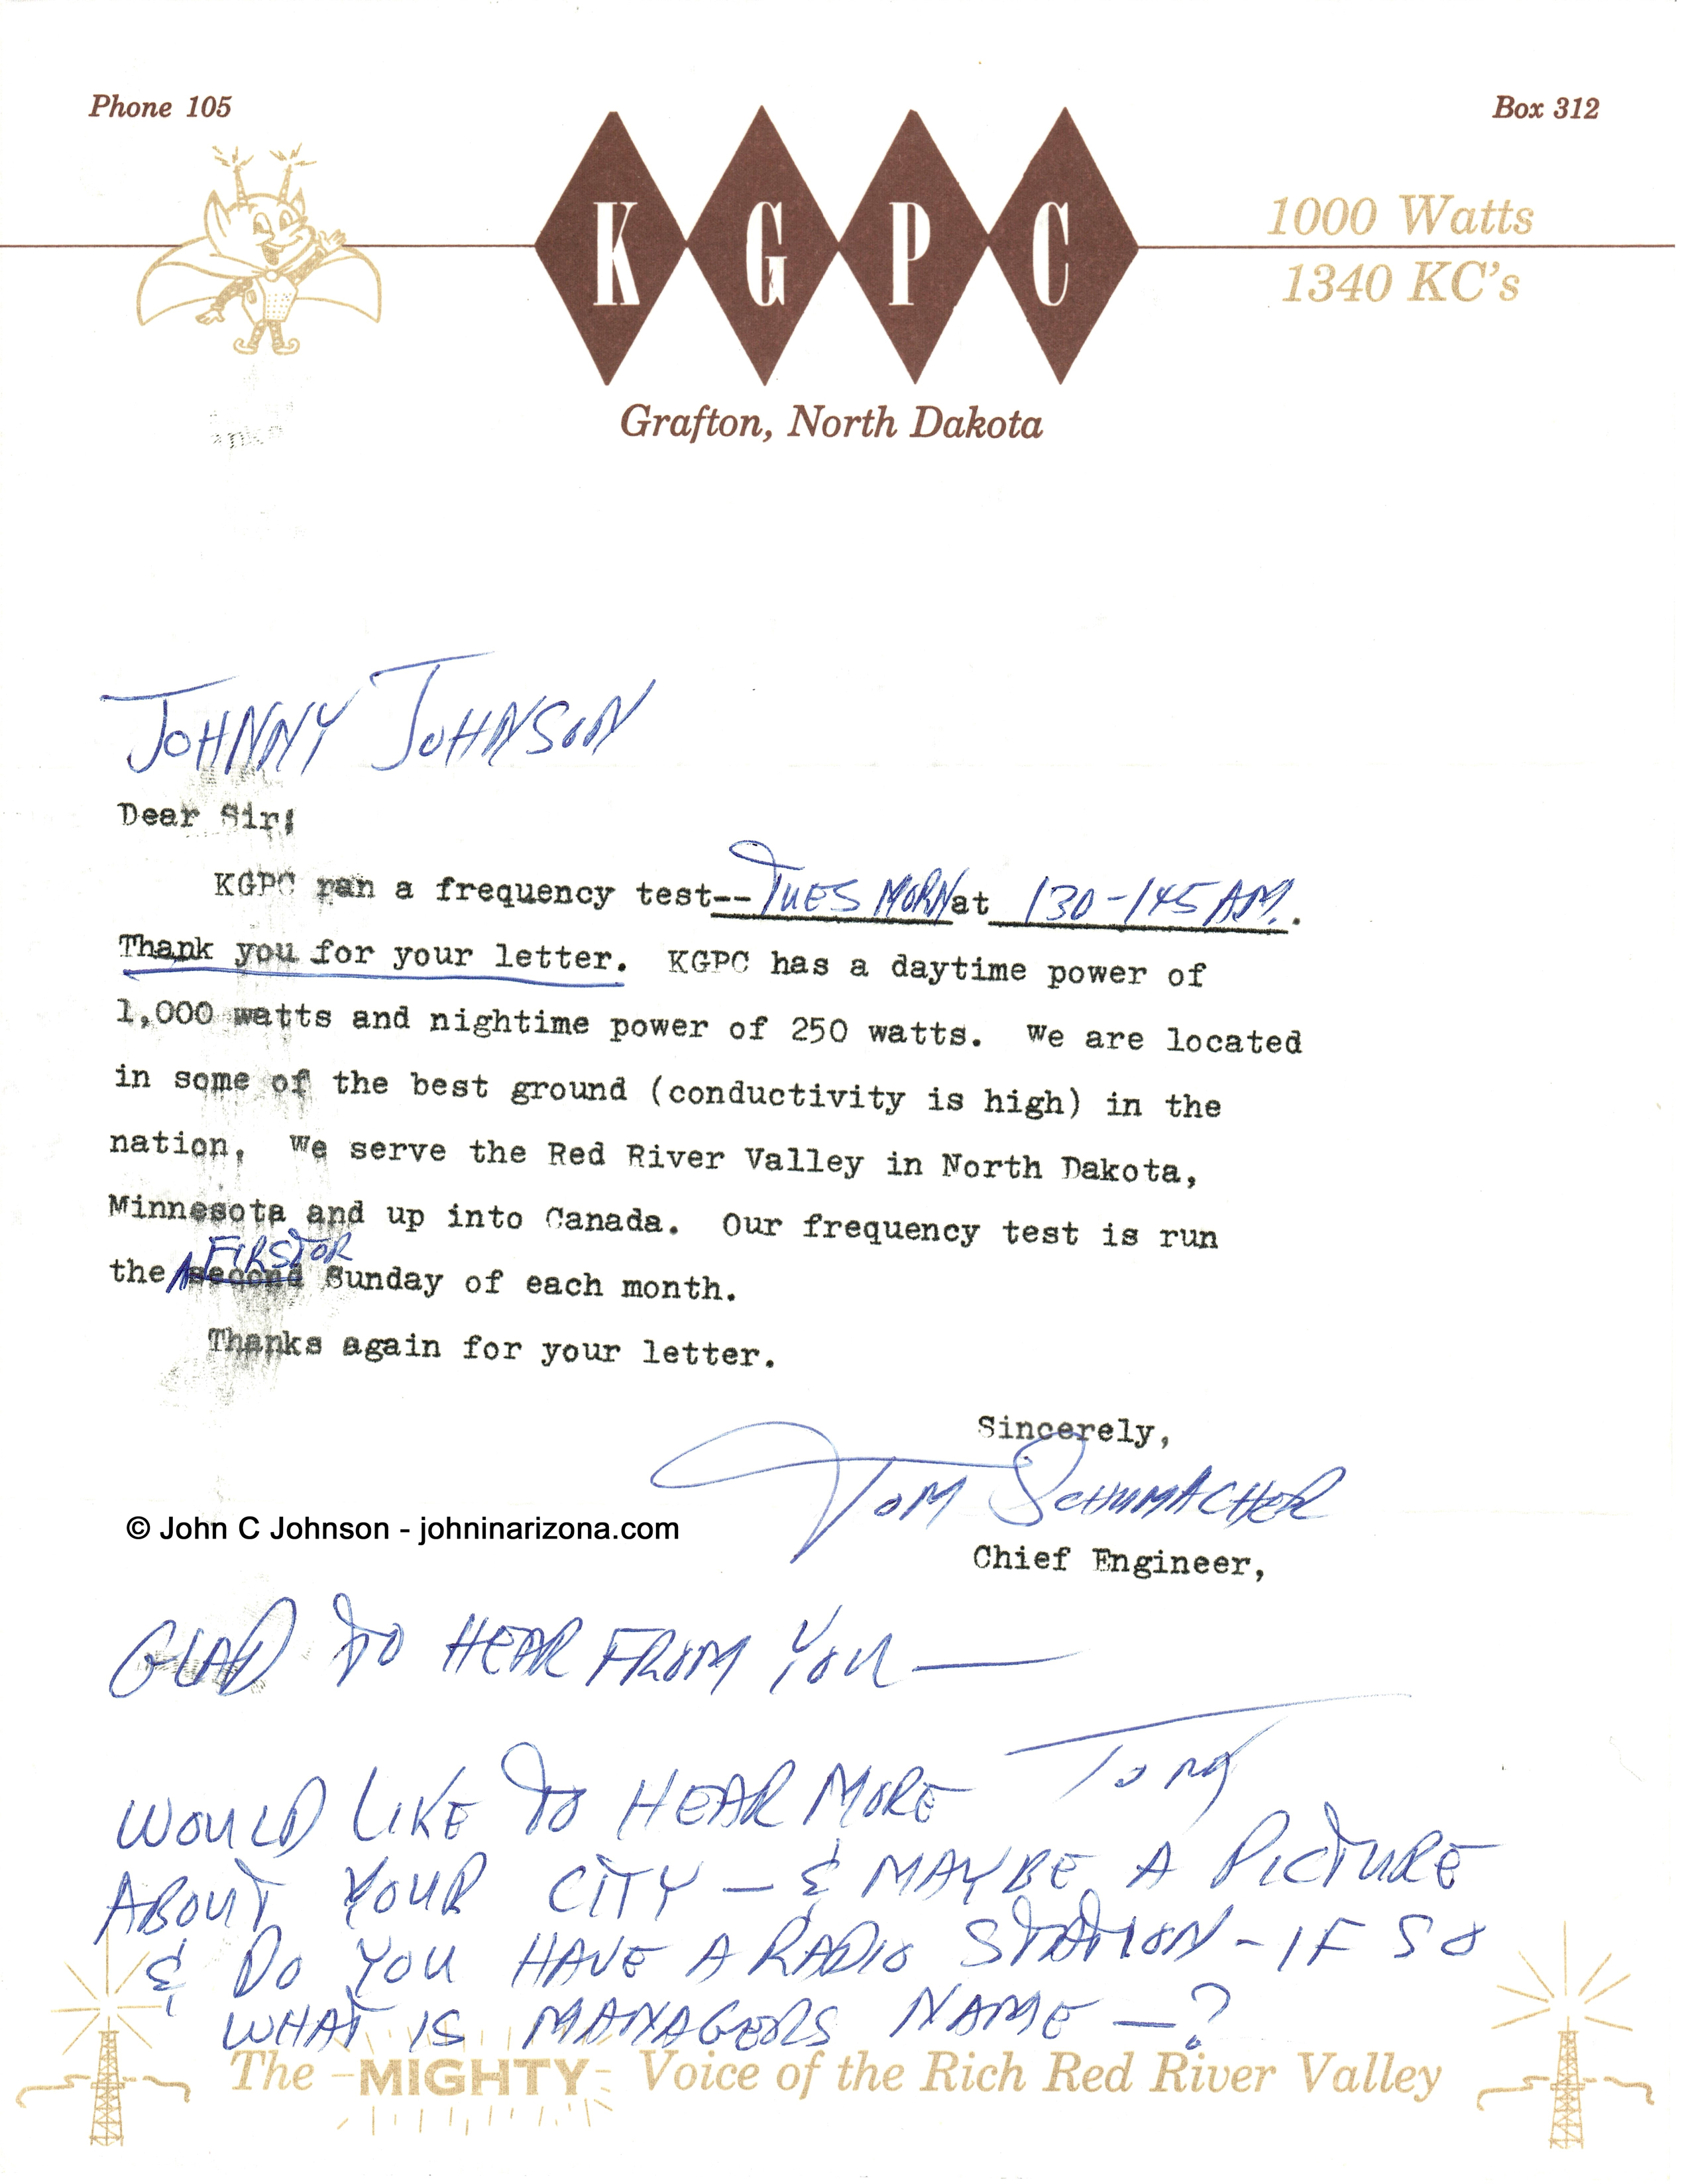 Phone 105
Box 312
K G P C
1000 Watts
1340 KC's
Grafton, North Dakota
JOHNNY JOHNSON
Dear Sir:
KGPC ran a frequency test--TUES MORN at 130-145 AM.
Thank you for your letter. KGPC has a daytime power of
1,000 watts and nightime power of 250 watts. We are located
in some of the best ground (conductivity is high) in the
nation. We serve the Red River Valley in North Dakota,
Minnesota and up into Canada. Our frequency test is run
FIRST OR
the second Sunday of each month.
Thanks again for your letter.
Sincerely,
TOM SCHUMACHER
© John C Johnson - johninarizona.com
Chief Engineer,
GLAD TO HEAR FROM YOU —
WOULD LIKE TO HEAR MORE
ABOUT YOUR CITY — & MAYBE A PICTURE
& DO YOU HAVE A RADIO STATION - IF SO
WHAT IS MANAGERS NAME —?
The -MIGHTY- Voice of the Rich Red River Valley